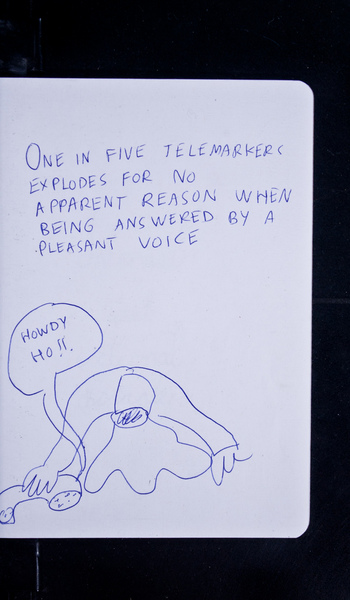 ONE IN FIVE TELEMARKERS
EXPLODES FOR NO
APPARENT REASON WHEN
BEING ANSWERED BY A
PLEASANT VOICE
HOWDY
HO!!